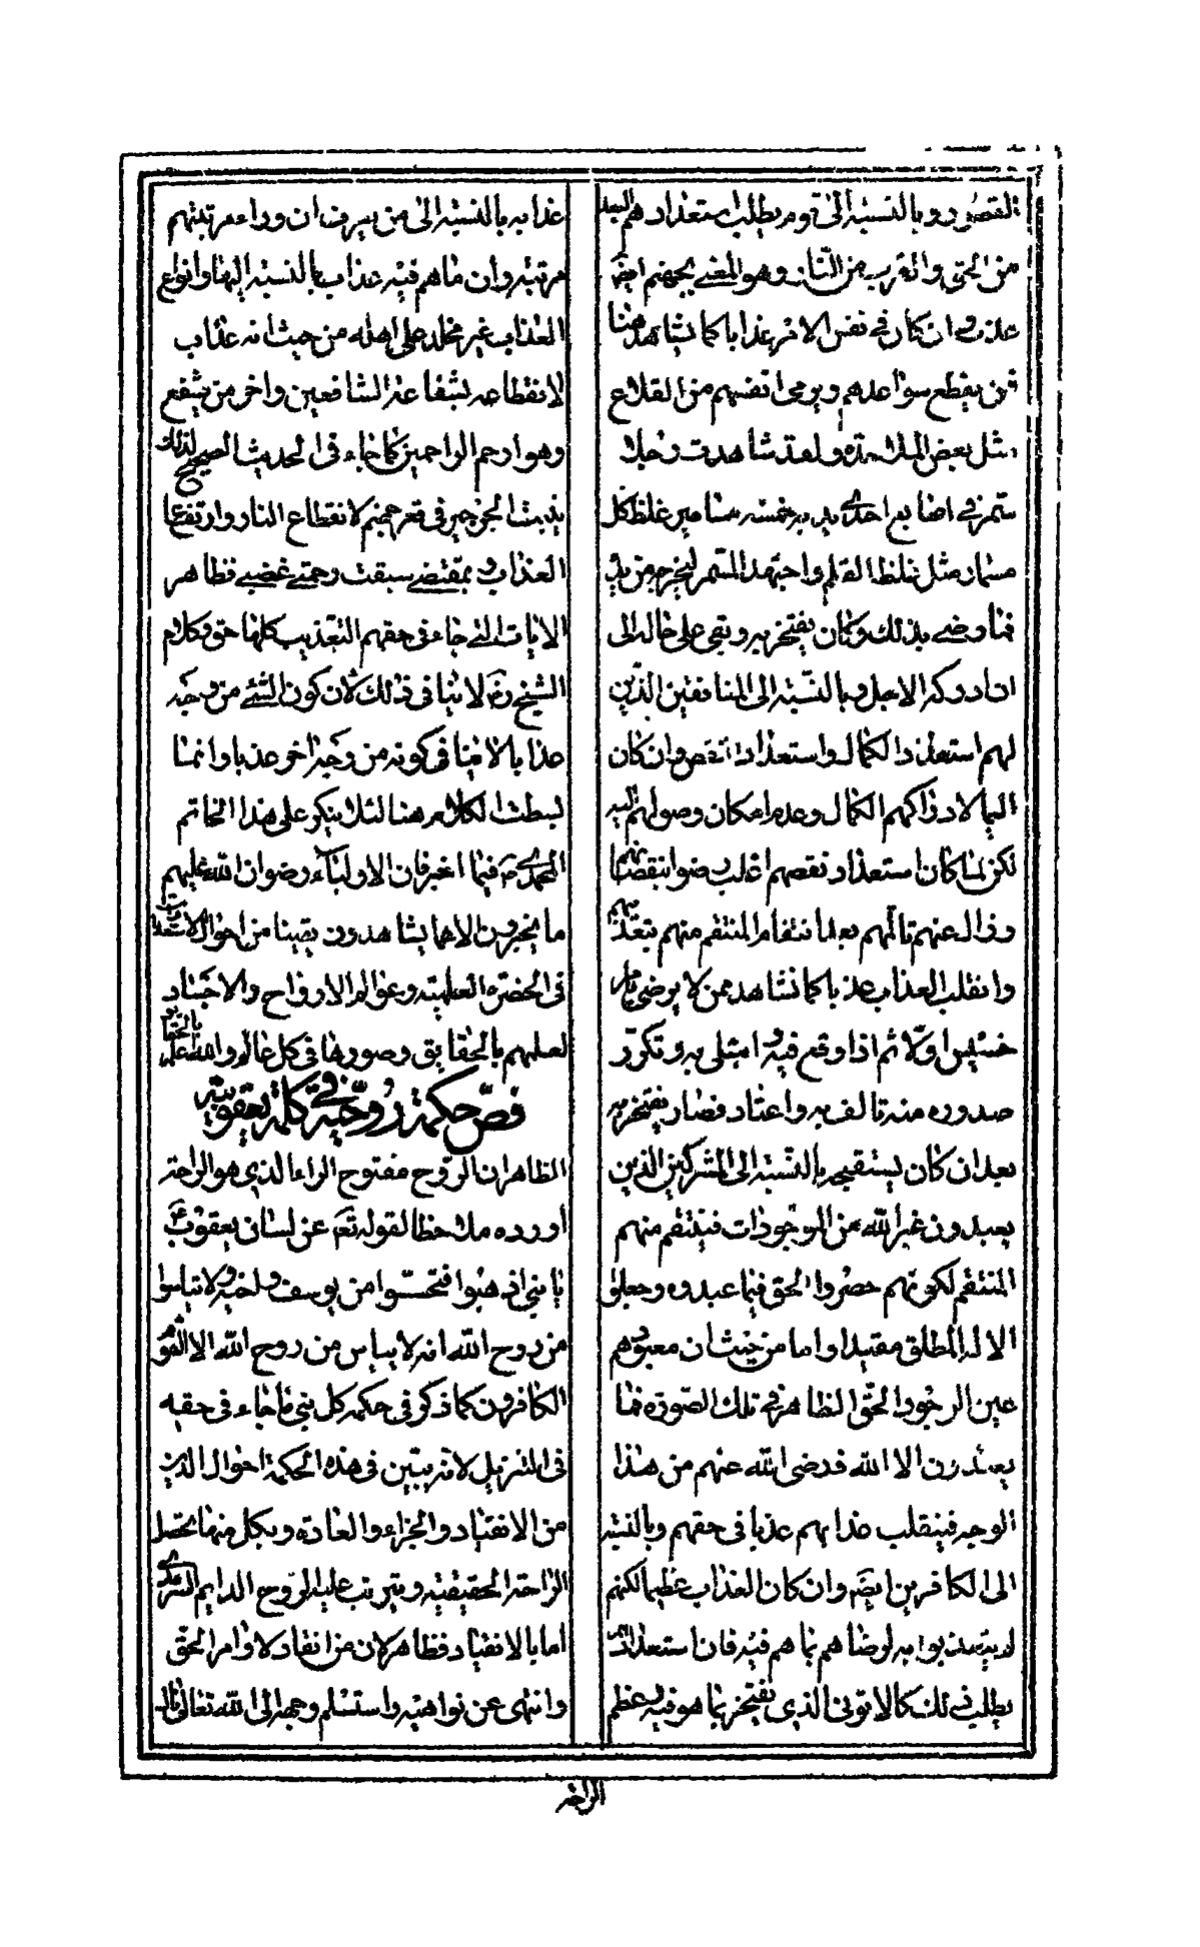 القصور و بالنسبة الى قوم يطلب استعدادهم البعد
من الحق والقرب من النار وهو المعنى بجهنم ايضا
عذب وان كان في نفس الامر عذابا كما يشاهد هنا
ممن يقطع سواعدهم ويرمى انفسهم من القلاع
مثل بعض الملاحدة ولقد شاهدت رجلا
سمر في اصابع احدى يديه خمسة مسامير غلظ كل
مسمار مثل غلظ القلم واجتهد المسمر ليخرجه من يده
فما رضى بذلك وكان يفتخر به وبقى على حاله الى
ان ادركه الاجل وبالنسبة الى المنافقين الذين
لهم استعداد الكمال واستعداد النقص وان كان
اليما لادراكهم الكمال وعدم امكان وصولهم اليه
لكن لما كان استعداد نقصهم اغلب رضوا بنقصانهم
وزال عنهم تالمهم بعد انتقام المنتقم منهم بتعذيبهم
وانقلب العذاب عذبا كما نشاهد ممن لا يرضى بامر
خسيس اولا ثم اذا وقع فيه وابتلى به وتكرر
صدوره منه تالف به واعتاد فصار يفتخر به
بعد ان كان يستقبحه وبالنسبة الى المشركين الذين
يعبدون غير الله من الموجودات فينتقم منهم
المنتقم لكونهم حصروا الحق فيما عبدوه وجعلوا
الاله المطلق مقيدا واما من حيث ان معبودهم
عين الوجود الحق الظاهر في تلك الصورة فما
يعبدون الا الله فرضى الله عنهم من هذا
الوجه فينقلب عذابهم عذبا في حقهم وبالنسبة
الى الكافرين ايضا وان كان العذاب عظيما لكنهم
لم يتعذبوا به لرضاهم بما هم فيه فان استعدادهم
يطلب ذلك كالاتونى الذى يفتخر بما هو فيه وعظم
عذابه بالنسبة الى من يعرف ان وراء مرتبتهم
مرتبة وان ما هم فيه عذاب بالنسبة اليها وانواع
العذاب غير مخلد على اهله من حيث انه عذاب
لانقطاعه بشفاعة الشافعين واخر من يشفع
وهو ارحم الراحمين كما جاء في الحديث الصحيح لذلك
ينبت الجرجير في قعر جهنم لانقطاع النار وارتفاع
العذاب وبمقتضى سبقت رحمتى غضبى فظاهر
الايات التى جاء في حقهم التعذيب كلها حق وكلام
الشيخ رض لا ينافى ذلك لان كون الشئ من وجه
عذابا لا ينافى كونه من وجه اخر عذبا وانما
بسطت الكلام هنا لئلا ينكر على هذا الخاتم
المحمدى ص فيما اخبر فان الاولياء رضوان الله عليهم
ما يخبرون الا عما يشاهدون يقينا من احوال الاستعدادات
في الحضرة العلمية وعوالم الارواح والاجساد
لعلمهم بالحقايق وصورها في كل عالم والله اعلم بالحقايق
فص حكمة روحية في كلمة يعقوبية
الظاهر ان الروح مفتوح الراء الذى هو الراحة
اورده ملاحظا لقوله تعم عن لسان يعقوب ع
يا بنى اذهبوا فتحسسوا من يوسف واخيه ولا تياسوا
من روح الله انه لا يياس من روح الله الا القوم
الكافرون كما ذكر في حكمة كل نبى ما جاء في حقه
في التنزيل لانه يبين في هذه الحكمة احوال الدين
من الانقياد والجزاء والعادة وبكل منها يحصل
الراحة الحقيقية ويترتب عليه الروح الدايم السرمدى
اما بالانقياد فظاهر لان من انقاد لاوامر الحق
وانتهى عن نواهيه واستسلم وجهه الى الله تعالى نال
الراحة